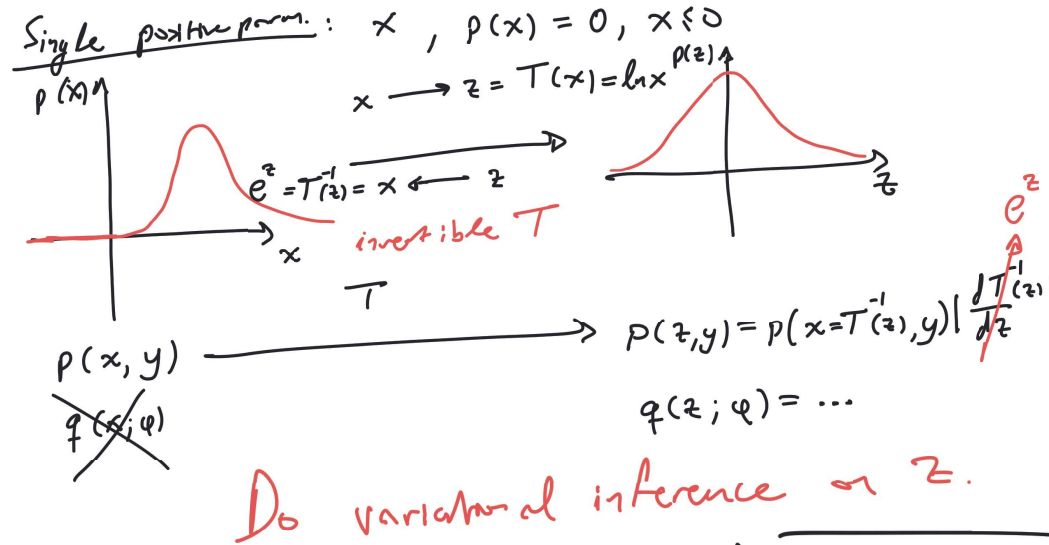 Single positive param. : x , p(x) = 0, x ≤ 0
p(x)
x → z = T(x) = ln x
p(z)
e^z = T^-1(z) = x ← z
x
z
invertible T
e^z
T
p(x, y) → p(z,y) = p(x=T^-1(z),y) | dT^-1(z)/dz
q(x; φ)
q(z; φ) = ...
Do variational inference on z.